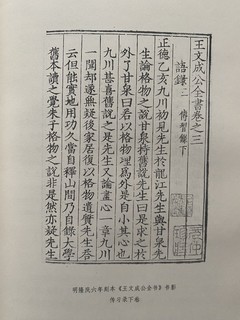 王文成公全書卷之三
語錄三 傳習錄下
正德乙亥九川初見先生於龍江先生與甘泉先
生論格物之說甘泉持舊說先生曰是求之於
外了甘泉曰若以格物理爲外是自小其心也
九川甚喜舊說之是先生又論盡心一章九川
一聞却遂無疑後家居復以格物遺質先生答
云但能實地用功久當自釋山間乃自錄大學
舊本讀之覺朱子格物之說非是然亦疑先生
明隆庆六年刻本《王文成公全书》书影
传习录下卷